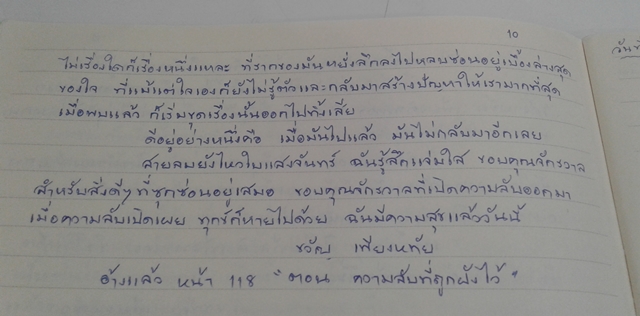 10
ไม่เรื่องใดก็เรื่องหนึ่งแหละ ที่รากของมันหยั่งลึกลงไปหลบซ่อนอยู่เบื้องล่างสุด
ของใจ ที่แม้แต่ใจเองก็ยังไม่รู้ตัวและกลับมาสร้างปัญหาให้เรามากที่สุด
เมื่อพบแล้ว ก็เริ่มขุดเรื่องนั้นออกไปทิ้งเสีย
ดีอยู่อย่างหนึ่งคือ เมื่อมันไปแล้ว มันไม่กลับมาอีกเลย
สายลมยังไหวใบแสงจันทร์ ฉันรู้สึกแจ่มใส ขอบคุณจักรวาล
สำหรับสิ่งดีๆ ที่ซุกซ่อนอยู่เสมอ ขอบคุณจักรวาลที่เปิดความลับออกมา
เมื่อความลับเปิดเผย ทุกข์ก็หายไปด้วย ฉันมีความสุขแล้ววันนี้
ขวัญ เพียงหทัย
อ้างแล้ว หน้า 118 "ตอน ความลับที่ถูกฝังไว้"